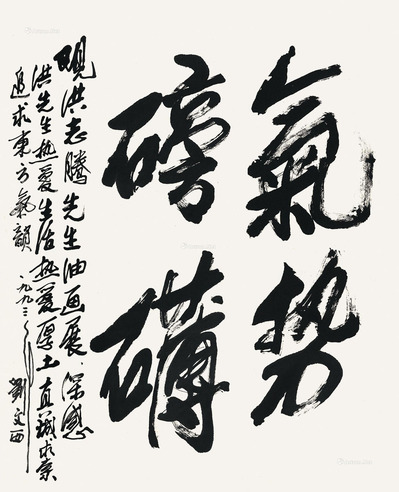 氣势
磅礴
觀洪志腾先生油画展.深感
洪先生热爱生活热爱厚土真誠求索
追求東方氣韻 一九九三 劉文西